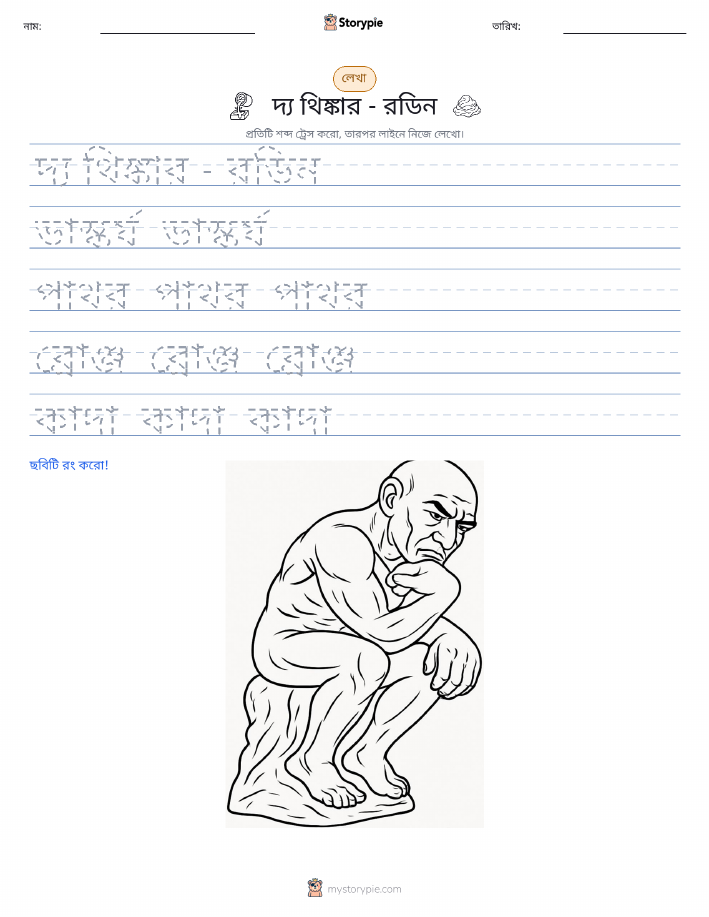 নাম:
Storypie
তারিখ:
লেখা
দ্য থিঙ্কার - রডিন
প্রতিটি শব্দ ট্রেস করো, তারপর লাইনে নিজে লেখো।
দ্য থিঙ্কার - রডিন
ভাস্কর্য ভাস্কর্য
পাথর পাথর পাথর
ব্রোঞ্জ ব্রোঞ্জ ব্রোঞ্জ
কাদা কাদা কাদা
ছবিটি রং করো!
mystorypie.com